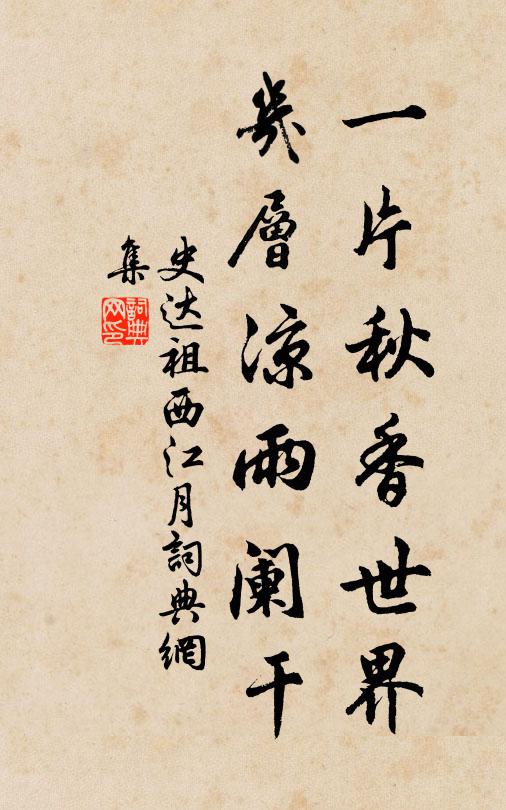 一片秋香世界
幾層涼雨阑干
史达祖西江月詞典網
集
詞典网印